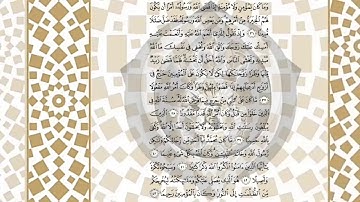 وَمَا كَانَ لِمُؤْمِنٍ وَلَا مُؤْمِنَةٍ إِذَا قَضَى ٱللَّهُ وَرَسُولُهُۥٓ أَمْرًا أَن يَكُونَ
لَهُمُ ٱلْخِيَرَةُ مِنْ أَمْرِهِمْ وَمَن يَعْصِ ٱللَّهَ وَرَسُولَهُۥ فَقَدْ ضَلَّ ضَلَٰلًا
مُّبِينًا ٣٦ وَإِذْ تَقُولُ لِلَّذِىٓ أَنْعَمَ ٱللَّهُ عَلَيْهِ وَأَنْعَمْتَ عَلَيْهِ
أَمْسِكْ عَلَيْكَ زَوْجَكَ وَٱتَّقِ ٱللَّهَ وَتُخْفِى فِى نَفْسِكَ مَا ٱللَّهُ
مُبْدِيهِ وَتَخْشَى ٱلنَّاسَ وَٱللَّهُ أَحَقُّ أَن تَخْشَىٰهُ فَلَمَّا قَضَىٰ زَيْدٌ
مِّنْهَا وَطَرًا زَوَّجْنَٰكَهَا لِكَىْ لَا يَكُونَ عَلَى ٱلْمُؤْمِنِينَ حَرَجٌ فِىٓ
أَزْوَٰجِ أَدْعِيَآئِهِمْ إِذَا قَضَوْا۟ مِنْهُنَّ وَطَرًا وَكَانَ أَمْرُ ٱللَّهِ مَفْعُولًا
٣٧ مَّا كَانَ عَلَى ٱلنَّبِىِّ مِنْ حَرَجٍ فِيمَا فَرَضَ ٱللَّهُ لَهُۥ سُنَّةَ ٱللَّهِ فِى
ٱلَّذِينَ خَلَوْا۟ مِن قَبْلُ وَكَانَ أَمْرُ ٱللَّهِ قَدَرًا مَّقْدُورًا ٣٨ ٱلَّذِينَ
يُبَلِّغُونَ رِسَٰلَٰتِ ٱللَّهِ وَيَخْشَوْنَهُۥ وَلَا يَخْشَوْنَ أَحَدًا إِلَّا ٱللَّهَ
وَكَفَىٰ بِٱللَّهِ حَسِيبًا ٣٩ مَّا كَانَ مُحَمَّدٌ أَبَآ أَحَدٍ مِّن رِّجَالِكُمْ
وَلَٰكِن رَّسُولَ ٱللَّهِ وَخَاتَمَ ٱلنَّبِيِّۦنَ وَكَانَ ٱللَّهُ بِكُلِّ شَىْءٍ عَلِيمًا
٤٠ يَٰٓأَيُّهَا ٱلَّذِينَ ءَامَنُوا۟ ٱذْكُرُوا۟ ٱللَّهَ ذِكْرًا كَثِيرًا ٤١ وَسَبِّحُوهُ بُكْرَةً
وَأَصِيلًا ٤٢ هُوَ ٱلَّذِى يُصَلِّى عَلَيْكُمْ وَمَلَٰٓئِكَتُهُۥ لِيُخْرِجَكُم
مِّنَ ٱلظُّلُمَٰتِ إِلَى ٱلنُّورِ وَكَانَ بِٱلْمُؤْمِنِينَ رَحِيمًا ٤٣